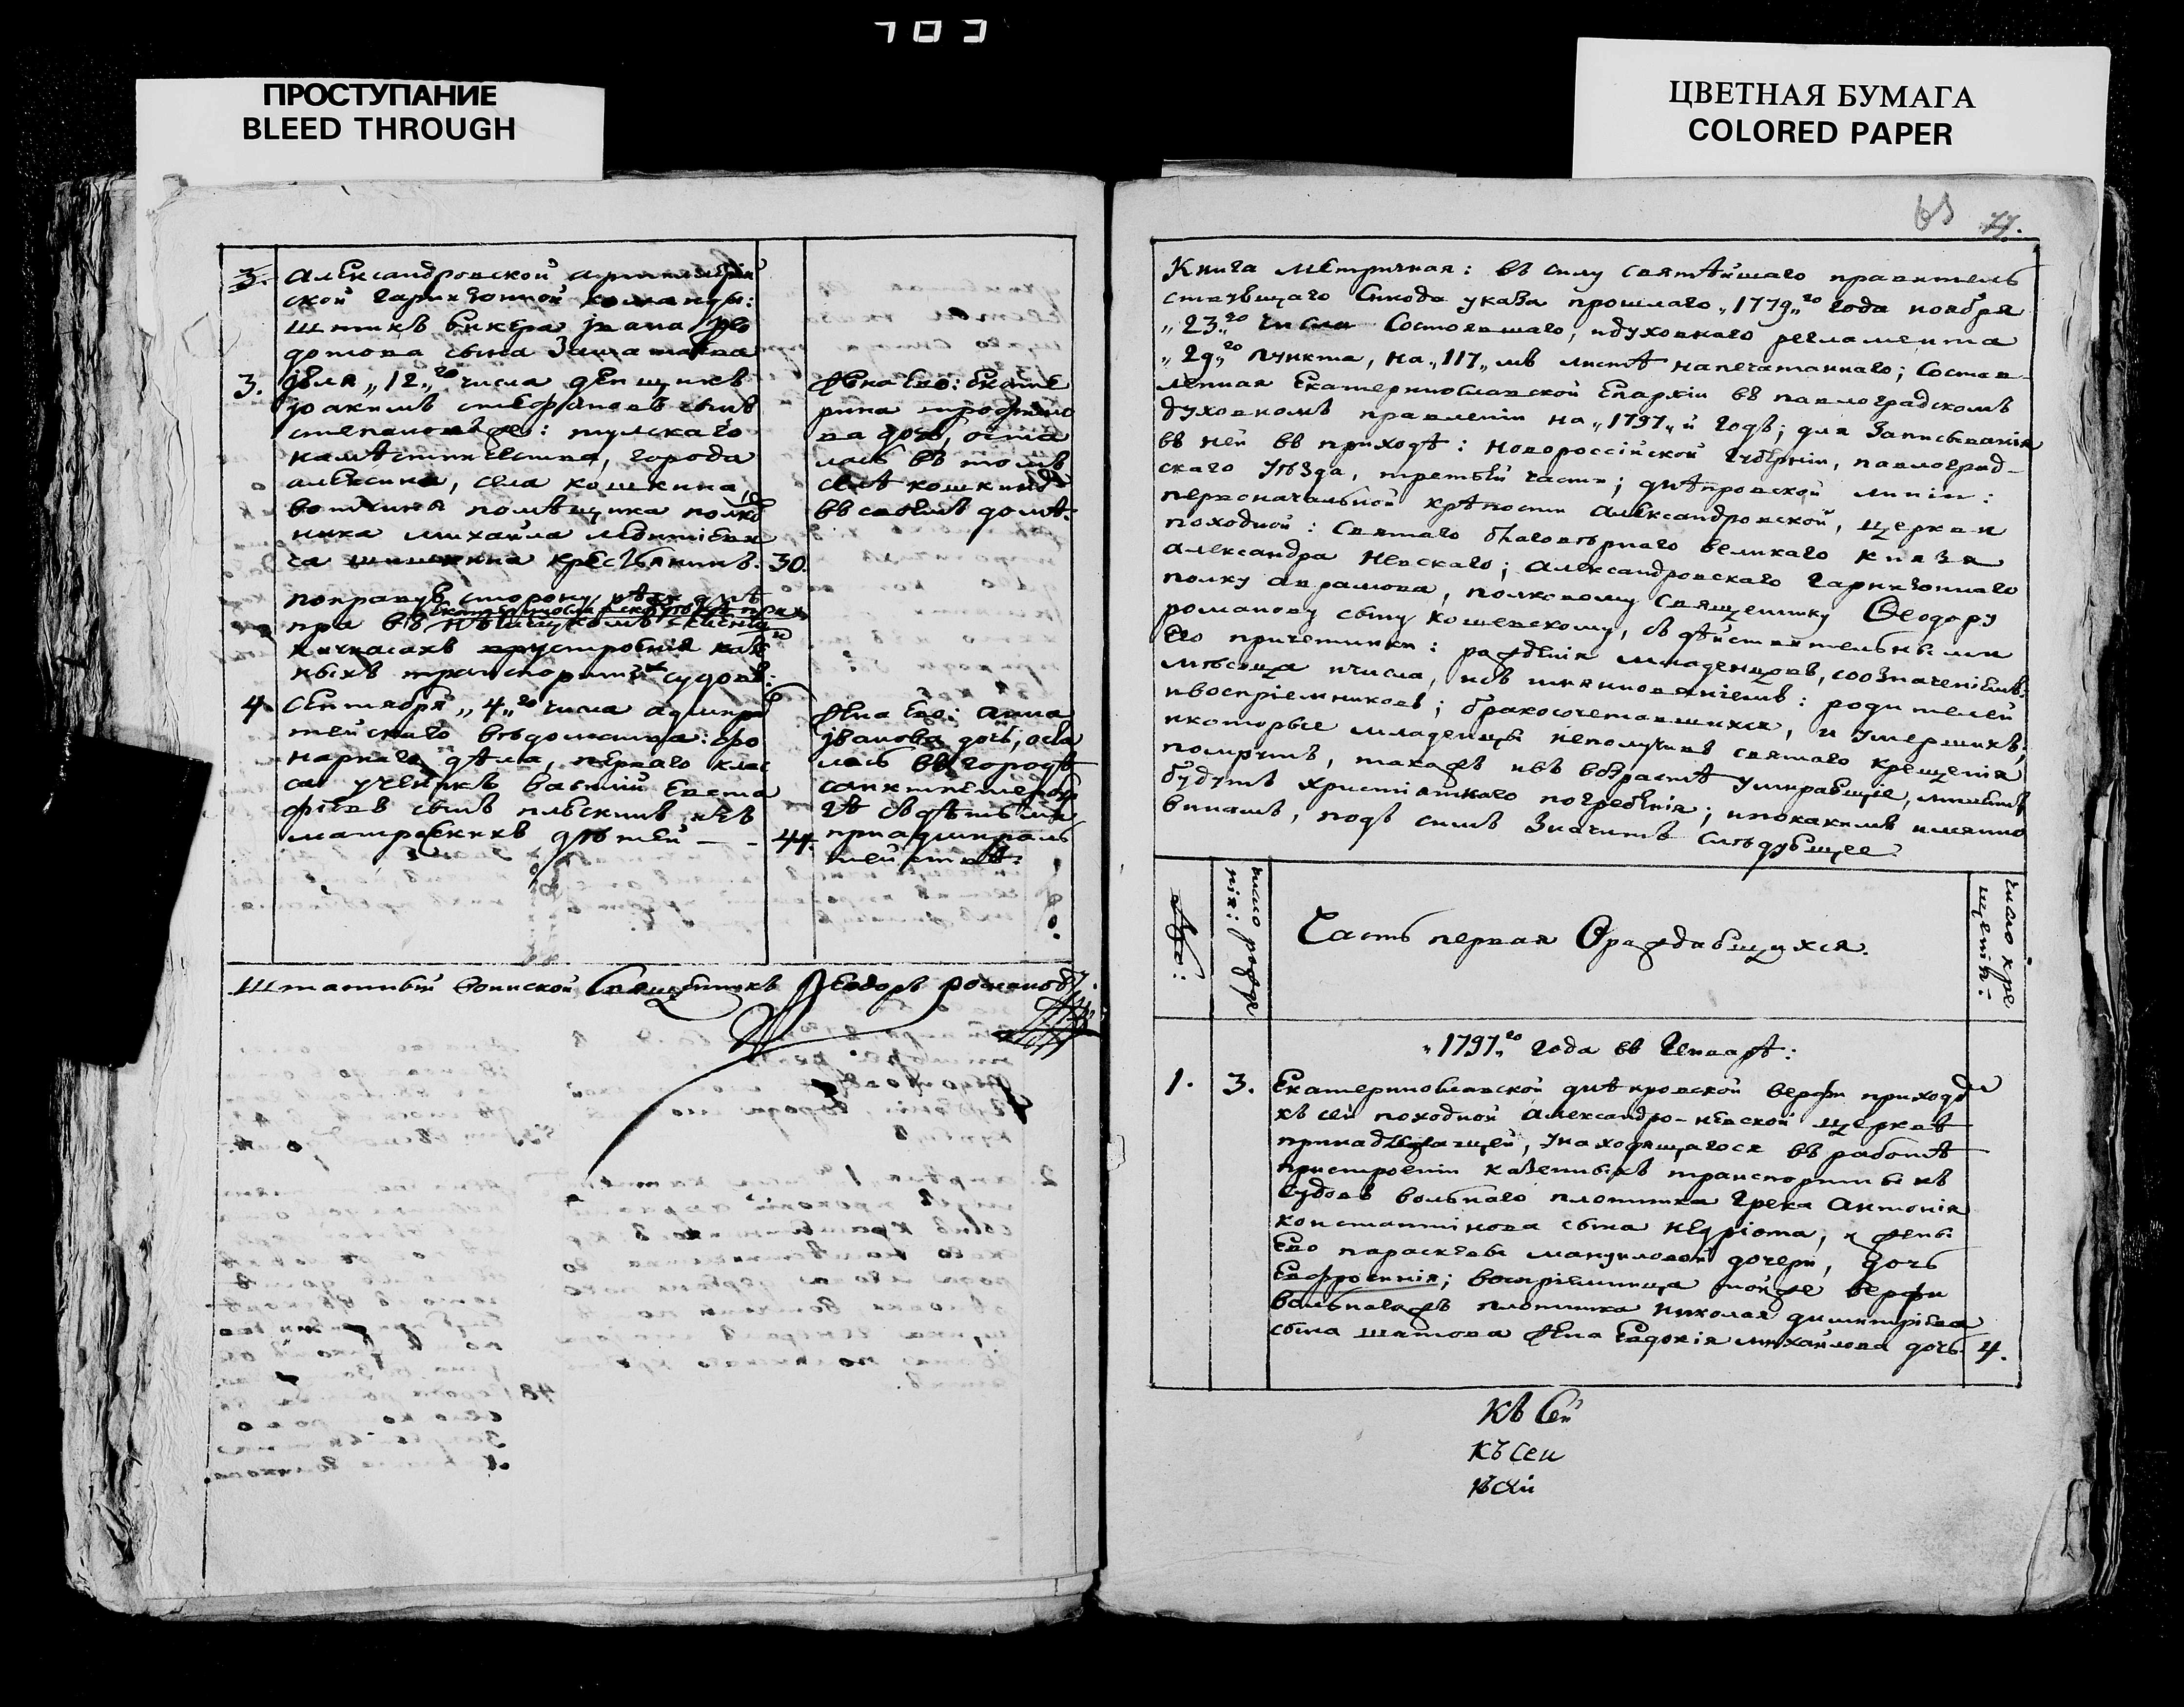 703
ПРОСТУПАНИЕ
BLEED THROUGH
ЦВЕТНАЯ БУМАГА
COLORED PAPER
3. Александровской артиллерій
ской гарнизонной команды:
штыкъ юнкера Iвана
дотова сына
3. Iюля „12„го числа денщикъ
Iоакимъ Стефановъ сынъ
тулскаго
намѣстничества, города
алексина, села кошкина,
вотчины помѣщика полко
ника михайла
са шишкина крестьянинъ. 30.
жена Ево: Екате
рина трофимо
ва дочь, оста
лась въ томъ
селѣ кошкинѣ
въ своемъ домѣ.
по правую сторону рѣки днѣ
пра въ
кичкасахъ
ныхъ транспортныхъ судовъ:
4. Сентября „4„го числа адмирал
тейскаго вѣдомства:
перваго клас
са ученикъ Василій Евста
фіевъ сынъ изъ
матроскихъ дѣтей — - 44.
жена Ево: Анна
Iванова дочь, оста
лась въ городѣ
санктпетербур
гѣ съ дѣтьми
при адмираль
тействѣ.
Штатный воинской Священникъ Ѳеодоръ романовъ.
65 77.
Книга метричная: въ силу святѣйшаго правитель
ствующаго Синода указа прошлаго „1779„го года ноября
„23„го числа Состоявшаго, и духовнаго регламента
„29„го пункта, на „117„мъ листѣ напечатаннаго; Состав-
ленная Екатеринославской Епархіи въ павлоградскомъ
духовномъ правленіи на „1797„й годъ; для Записыванія
въ ней въ приходѣ: новороссійской губерніи, павлоград-
скаго уѣзда, третьей части; днѣпровской линіи:
первоначальной крѣпости Александровской, церкви
походной: Святаго благовѣрнаго великаго князя
Александра Невскаго; Александровскаго гарнизоннаго
полку аврамова, полковому Священнику Ѳеодору
романову сыну кошевскому, съ дѣйствительными
Его причетники: рожденія младенцовъ, со означеніемъ
мѣсяца и числа, и съ имянованіемъ: родителей
и воспріемниковъ; бракосочетавшихся, и умершихъ;
и которые младенцы не получивъ святаго крещенія
помрутъ, такожъ и въ возрастѣ умирающіе, лишены
будутъ христіанскаго погребенія; и по какимъ имянно
винамъ, подъ симъ Значитъ слѣдующее.
число рожде
нія:
Часть первая О раждающихся.
число кре
щенія:
„1797„го года въ Генварѣ:
1. 3. Екатеринославской днѣпровской верфи приходо
къ сей походной Александро-невской церквѣ
принадлежащей, у находящагося въ работѣ
при строеніи казенныхъ транспортныхъ
судовъ вольнаго плотника грека Антонія
константинова сына и жены
Ево параскевы мануиловой дочери, дочь
Евфросинія; воспріемница той же верфи
вольнагожъ плотника николая димитріева
сына шатова жена Евдокія михайлова дочь. 4.
Къ Сей
къ сеи
къ сей